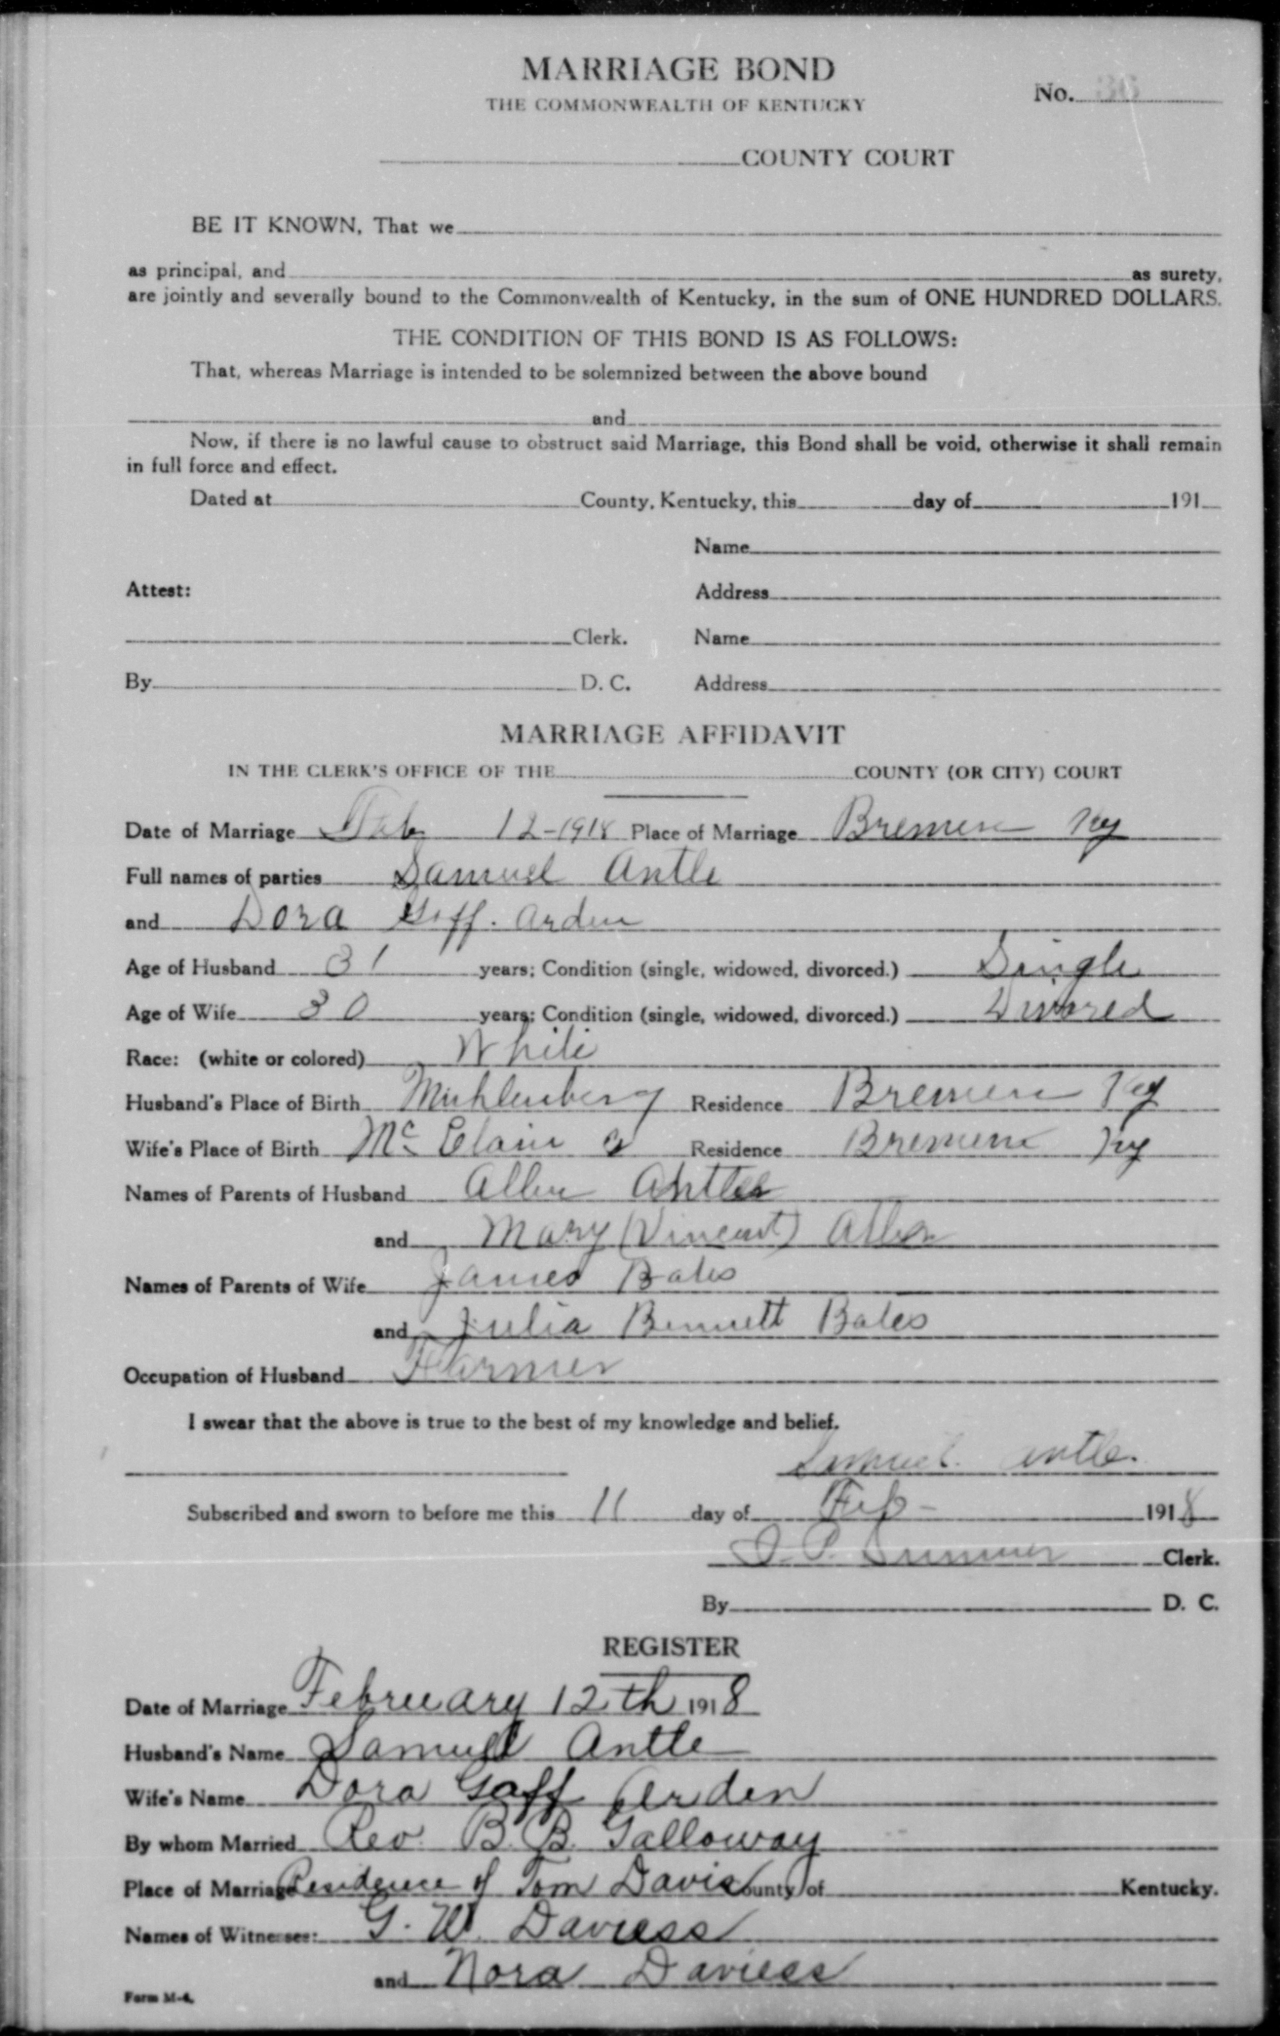 MARRIAGE BOND
No.
THE COMMONWEALTH OF KENTUCKY
COUNTY COURT
BE IT KNOWN, That we
as principal, and as surety,
are jointly and severally bound to the Commonwealth of Kentucky, in the sum of ONE HUNDRED DOLLARS.
THE CONDITION OF THIS BOND IS AS FOLLOWS:
That, whereas Marriage is intended to be solemnized between the above bound
and
Now, if there is no lawful cause to obstruct said Marriage, this Bond shall be void, otherwise it shall remain
in full force and effect.
Dated at County, Kentucky, this day of 191
Name
Attest: Address
Clerk. Name
By D. C. Address
MARRIAGE AFFIDAVIT
IN THE CLERK'S OFFICE OF THE COUNTY (OR CITY) COURT
Date of Marriage Feb 12-1918 Place of Marriage Bremen Ky
Full names of parties Samuel Antle
and Dora Goff. Arden
Age of Husband 31 years; Condition (single, widowed, divorced.) Single
Age of Wife 30 years; Condition (single, widowed, divorced.) Divored
Race: (white or colored) White
Husband's Place of Birth Muhlenberg Residence Bremen Ky
Wife's Place of Birth McClain Co Residence Bremen Ky
Names of Parents of Husband Allen Antle
and Mary (Vincent)
Names of Parents of Wife James Bates
and Julia Bennett Bates
Occupation of Husband Farmer
I swear that the above is true to the best of my knowledge and belief.
Samuel Antle.
Subscribed and sworn to before me this 11 day of Feb - 1918
Summer Clerk.
By D. C.
REGISTER
Date of Marriage February 12th 1918
Husband's Name Samuel Antle
Wife's Name Dora Goff Arden
By whom Married Rev. B. B. Galloway
Place of Marriage Residence of Tom Davis County of Kentucky.
Names of Witnesses: G. W. Daviess
and Nora Daviess
Form M-4.